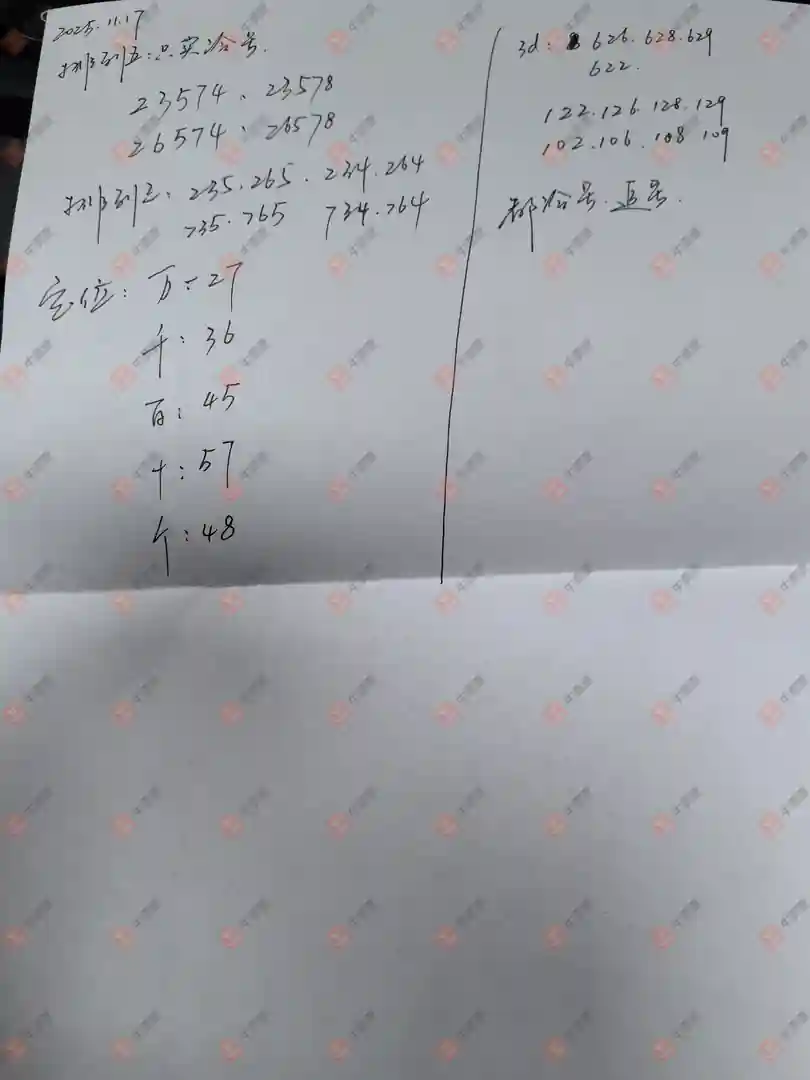 2025.11.17
排列五:只买冷号.
23574、23578
26574、26578
排列三、235.265.234.264
735.765 734.764
定位:万:27
千:36
百:45
十:57
个:48
3d: 626.628.629
622.
122.126.128.129
102.106.108 109
都冷号.直号.